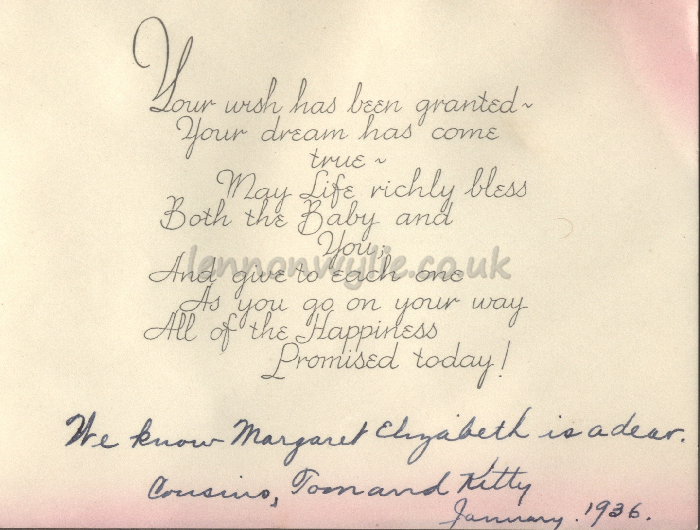 Your wish has been granted~
Your dream has come
true~
May Life richly bless
Both the Baby and
You;
lennonwylie.co.uk
And give to each one
As you go on your way
All of the Happiness
Promised today!
We know Margaret Elizabeth is a dear.
Cousins, Tom and Kitty
January. 1936.